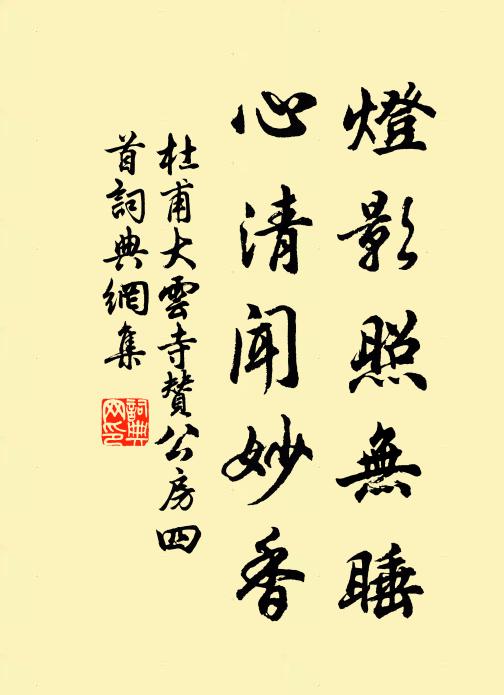 燈影照無睡
心清聞妙香
杜甫大雲寺贊公房四
首詞典網集
詞典
网印